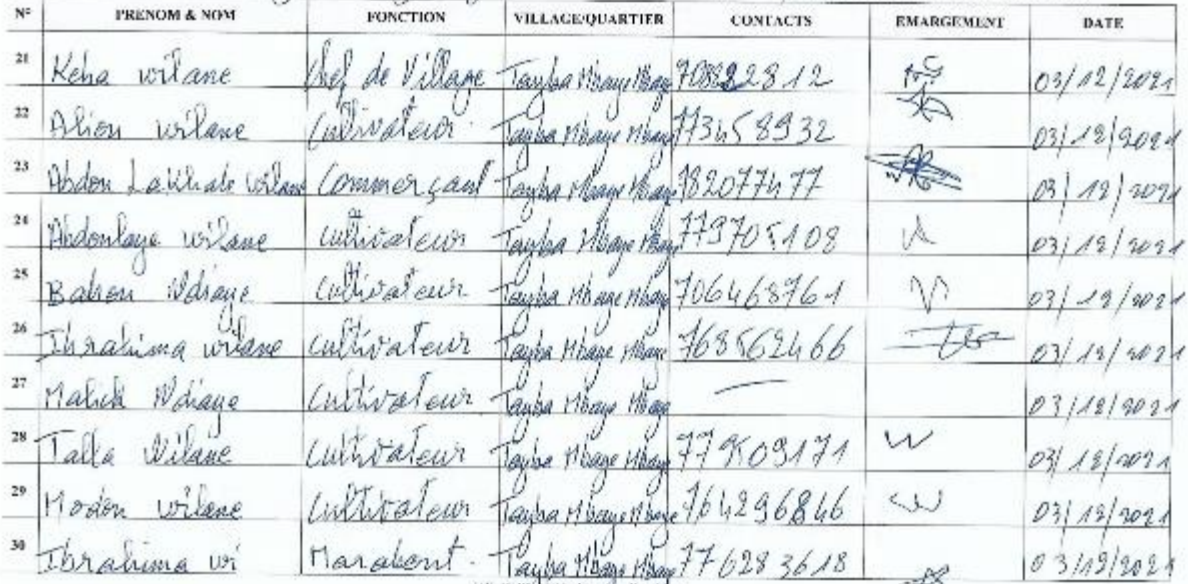 N° PRENOM & NOM FONCTION VILLAGE/QUARTIER CONTACTS EMARGEMENT DATE
21 Keba wilane Chef de Village Tayba Mbaye Mbaye 03/12/2021
22 Aliou wilane Cultivateur Tayba Mbaye Mbaye 773458932 03/12/2021
23 Abdou wilane Commerçant Tayba Mbaye Mbaye 782077477 03/12/2021
24 Abdoulaye wilane Cultivateur Tayba Mbaye Mbaye 779705108 03/12/2021
25 Babou Ndiaye Cultivateur Tayba Mbaye Mbaye 706468761 03/12/2021
26 Ibrahima wilane Cultivateur Tayba Mbaye Mbaye 768562466 03/12/2021
27 Malick Ndiaye Cultivateur Tayba Mbaye Mbaye — 03/12/2021
28 Talla Wilane Cultivateur Tayba Mbaye Mbaye 03/12/2021
29 Modou wilane Cultivateur Tayba Mbaye Mbaye 764296846 03/12/2021
30 Ibrahima wi Marabout. Tayba Mbaye Mbaye 776283618 03/12/2021